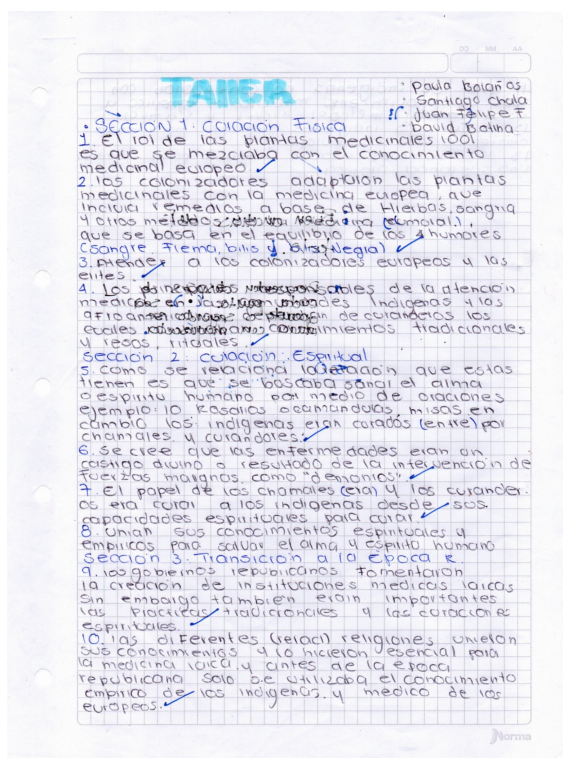 DD MM AA
TAller
• Paula Bolaños
• Santiago Chala
• Juan Felipe F
• David Bolina
• SECCIÓN 1: Curación Física
1. El rol de las plantas medicinales
es que se mezclaba con el conocimiento
medicinal europeo.
2. los colonizadores adaptaron las plantas
medicinales con la medicina europea, que
incluia remedios a base de Hierbas, sangria
y otros (humoral),
que se basa en el equilibrio de los 4 humores
(sangre, Flema, bilis y bilis Negra)
3. Atender a los colonizadores europeos y las
elites.
4. Los responsables de la atención
medica en indigenas y los
de curanderos los
cuales conocimientos tradicionales
y resos, rituales.
Sección 2: curación Espiritual
5. Como se relaciona la que estas
tienen es que se buscaba sanar el alma
o espiritu humano por medio de oraciones
ejemplo: 10 Rosarios o camandulas, misas en
cambio los indigenas eran curados (entre) por
chamales y curandores.
6. Se cree que las enfermedades eran un
castigo divino o resultado de la intervención de
fuerzas como "demonios"
7. El papel de los chamales (era) y los curander
os era curar a los indigenas desde sus
capacidades espirituales para curar.
8. Unian sus conocimientos espirituales y
empiricos para salvar el alma y espiritu humano
Sección 3: Transición a la Epoca R.
9. los gobiernos republicanos fomentaron
la creación de instituciones medicas laicas
sin embargo tambien eran importantes
las practicas tradicionales y las curaciones
espirituales.
10. las diferentes (relaci) religiones unieron
sus conocimientos y lo hicieron esencial para
la medicina laica y antes de la epoca
republicana solo se utilizaba el conocimiento
empirico de los indigenas. y medico de los
europeos.
Norma